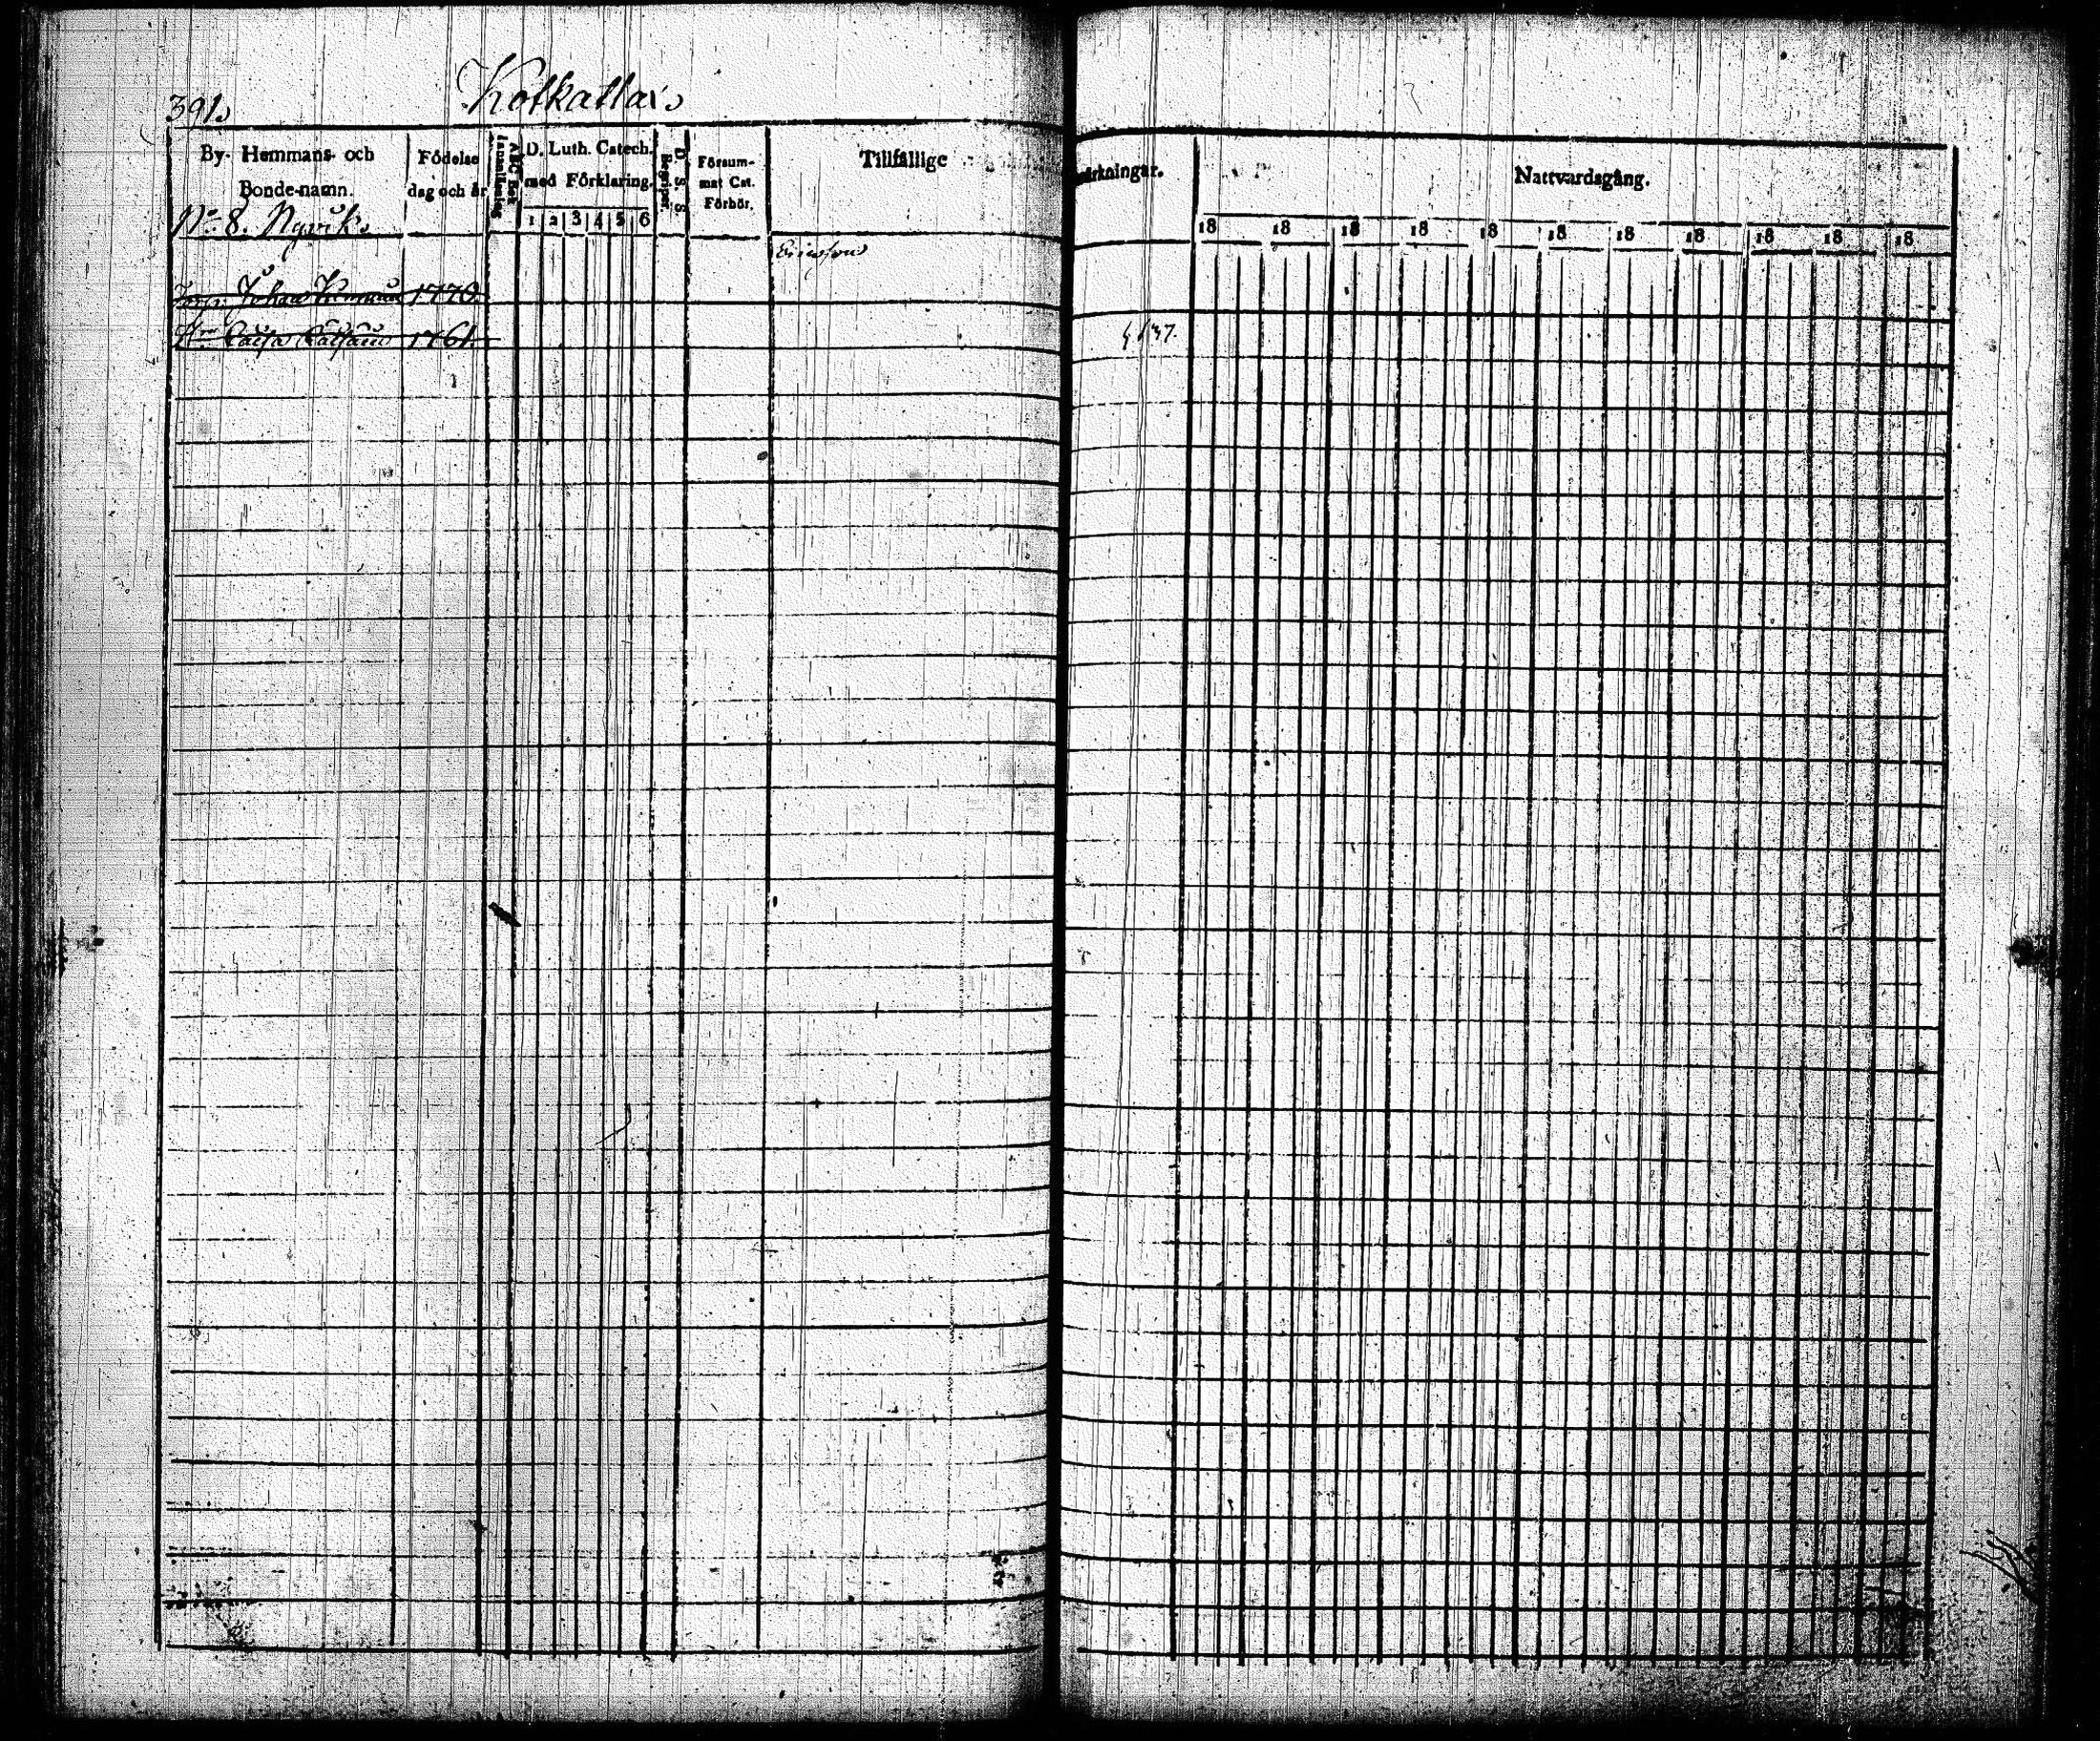 391.
Kotkallax.
By- Hemmans- och Bonde-namn.
Födelse dag och år
ABC Bok Innanläsning
D. Luth. Catech. med Förklaring.
1 2 3 4 5 6
D. S. S. Begriper.
Försummat Cat. Förhör.
Tillfällige
märkningar.
Nattvardsgång.
18 18 18 18 18 18 18 18 18 18 18
No 8. Nyvik.
Ericsson
Johan 1770.
Caisa 1761.
37.